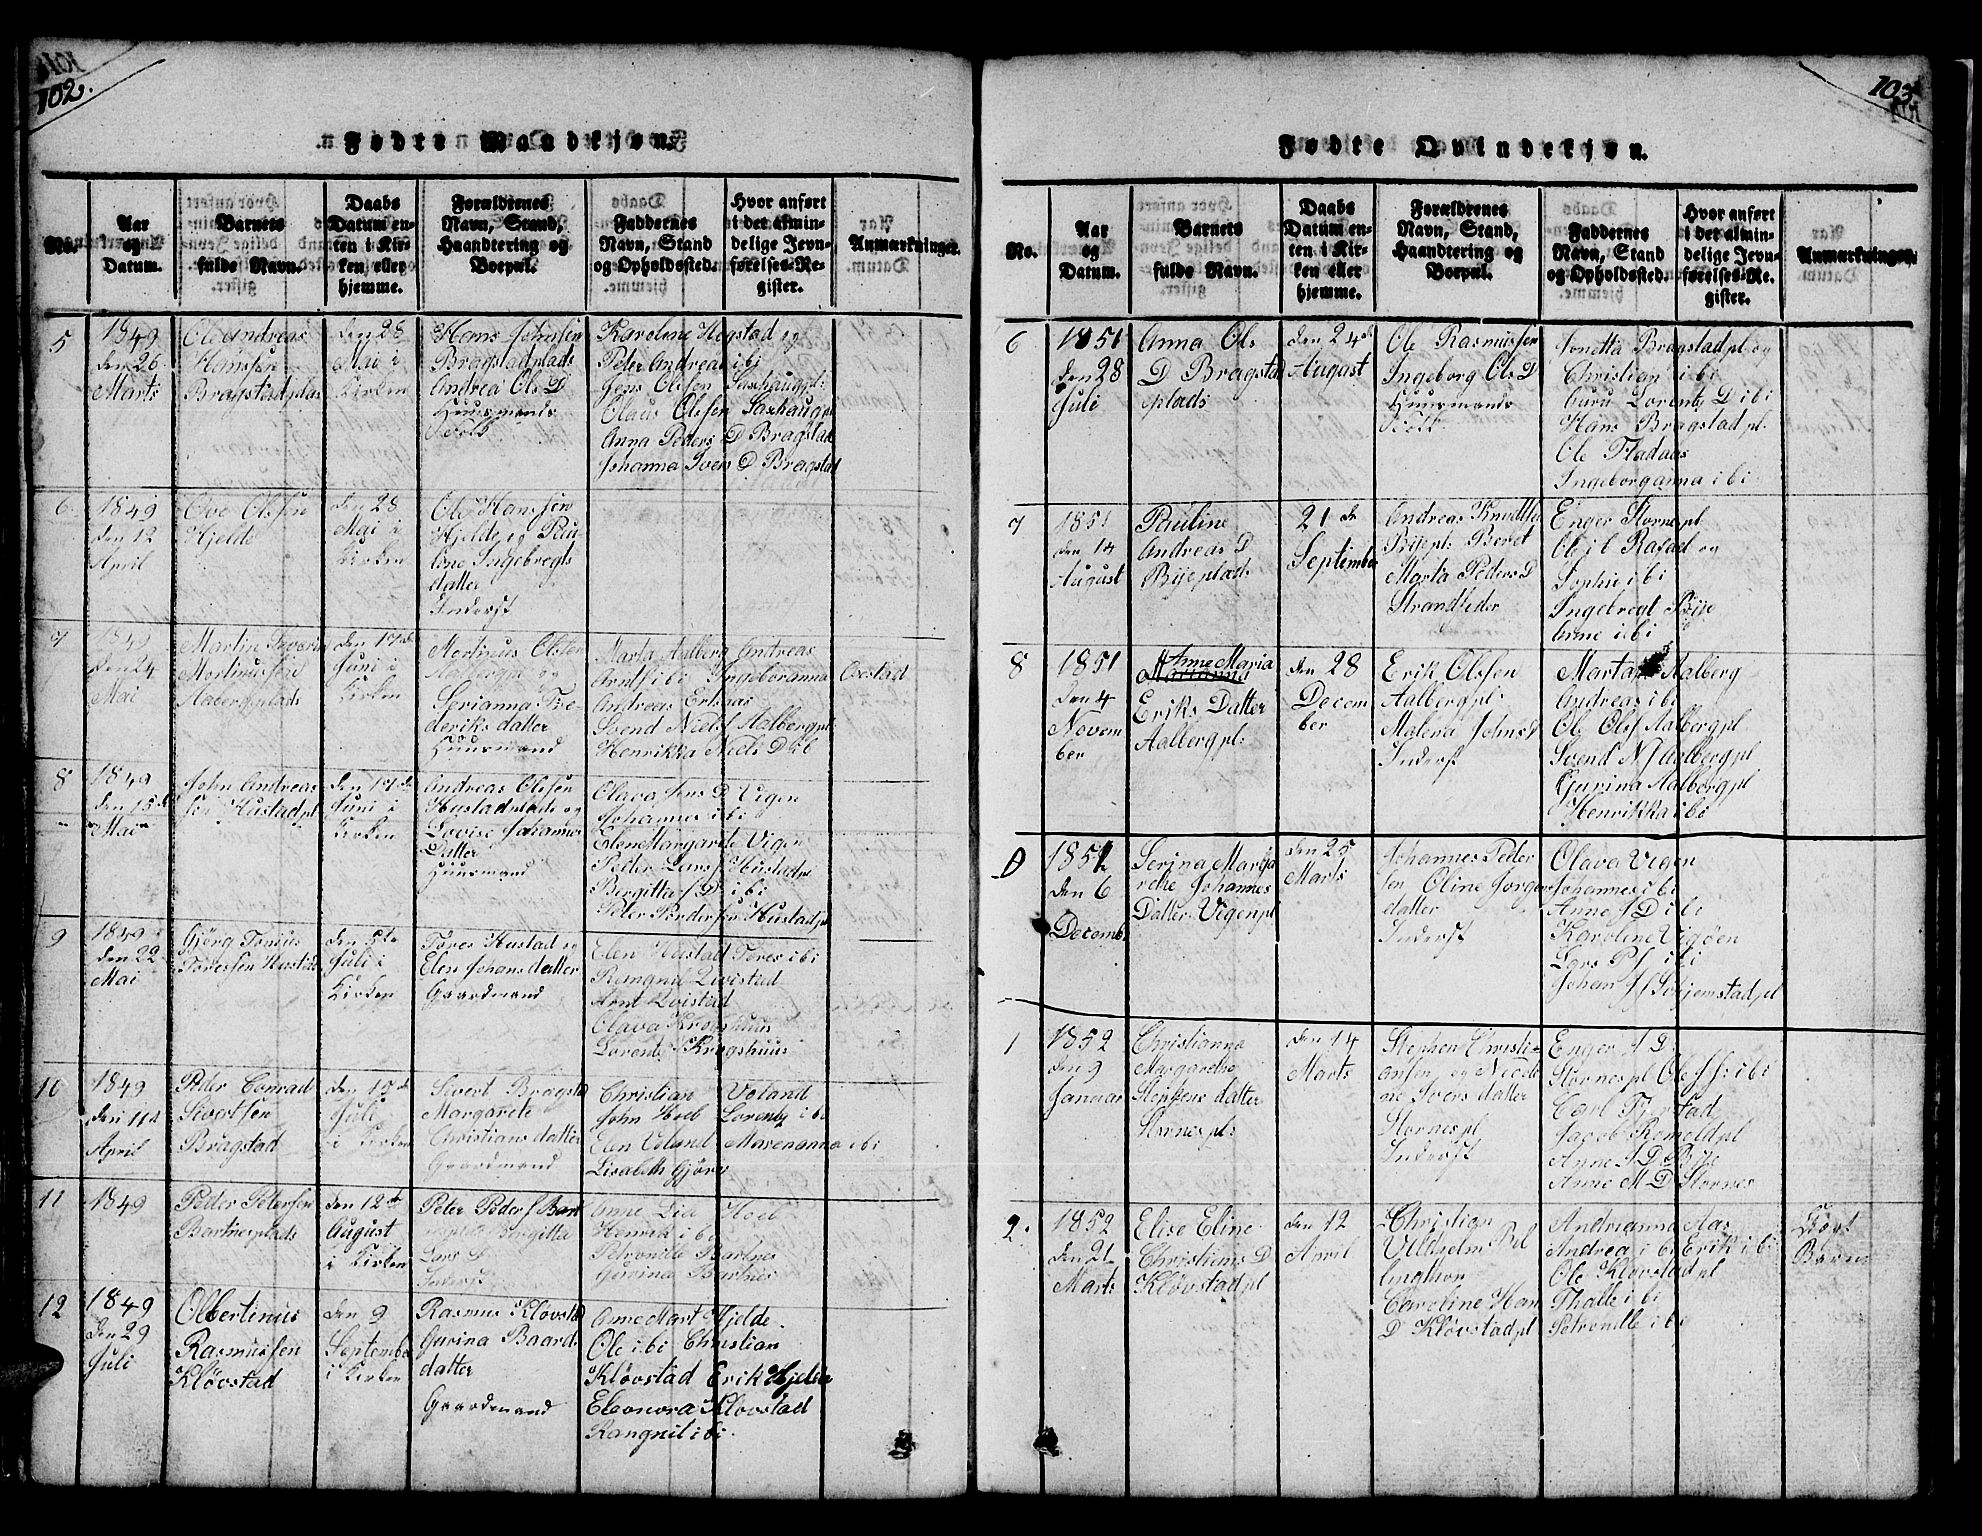 102.
Fødte Mandkjøn.
No.
Aar
og
Datum.
Barnets
fulde Navn.
Daabs
Datum en-
ten i Kir-
ken eller
hjemme.
Forældrenes
Navn, Stand,
Haandtering og
Boepæl.
Faddernes
Navn, Stand
og Opholdssted.
Hvor anført
i det almin-
delige Jevn-
førelses-Re-
gister.
Anmærkninger.
5
1849
den 26
Marts
Ole Andreas
Hansen
Bragstadplads
den 28
Mai i
Kirken
Hans Johnsen
Bragstadplads
Andrea Ols D
Huusmands
Folk
Karoline Hogstad og
Peter Andreas ibi
Jens Olssen Saxhaugpl:
Olaus Olssen Saxhaugpl
Anna Peders D Bragstad
Johanna Ivers D Bragstad
6
1849
den 12
April
Ove Olssen
Hjelde
den 28
Mai i
Kirken
Ole Hanssen
Hjelde og Pau
line Ingebregts
datter
Inderst
7
1849
den 24
Mai
Martin
Mortinussen
Aabergplads
den 17de
Juni i
Kirken
Mortinus Olsen
Aalbergpl og
Serianna Fre
deriks datter
Huusmand
Marta Aalberg Andreas
Arntf ibi Ingeboranna
Andreas Ertsaas
Svend Nielsf Aalbergpl:
Henrikka Niels D ibi
Oxestad
8
1849
den 15de
Mai
John Andreas
sen Hustadpl
den 17de
Juni i
Kirken
Andreas Olssen
Hustadplads og
Lovise Johannes
Datter
Huusmand
Olava Jens D Vigen
Johannes ibi
Elen Margarete Vigen
Peder Larsf Hustadpl
Bergitta J D ibi
Peter Pedersen Hustadpl
9
1849
den 22
Mai
Gjørg Tonius
Toressen Hustad
den 5te
Juli i
Kirken
Tores Hustad og
Elen Johans datter
Gaardmand
Elen Hustad Tores ibi
Rangnil Qvistad
Arnt Qvistad
Olava Krogshuus
Lorentz Krogshuus
10
1849
den 11te
April
Peder Conrad
Sivertsen
Bragstad
den 15de
Juli
i Kirken
Sivert Bragstad
Margarete
Christians datter
Gaardmand
Christian Voland
John Hoel Lorentz ibi
Elen Voland Marenanna ibi
Lisabeth Gjørv
11
1849
Peder Petersen
Bartnesplads
den 12te
August
i Kirken
Peter Pedersf Bart
nespl Birgitta
Lars D
Inderst
Anne Lia Hoel
Henria ibi
Petronille Bartnes
Gurina Bartnes
12
1849
den 29
Juli
Olbertinus
Rasmussen
Kløvstad
den 9
September
i Kirken
Rasmus Kløvstad
Gurina Baards
datter
Gaardmand
Anne Mart Hjelde
Ole ibi Christian
Kløvstad Erik Hjelde
Eleonora Kløvstad
Rangnil ibi.
103
Fødte Qvindekjøn.
No.
Aar
og
Datum.
Barnets
fulde Navn.
Daabs
Datum en-
ten i Kir-
ken eller
hjemme.
Forældrenes
Navn, Stand,
Haandtering og
Boepæl.
Faddernes
Navn, Stand
og Opholdssted.
Hvor anført
i det almin-
delige Jevn-
førelses-Re-
gister.
Anmærkninger.
6
1851
den 28
Juli
Anna Ols
D Bragstad
plads
den 24de
August
Ole Rasmussen
Ingeborg Ols D
Huusmands
Folk
Jonetta Bragstadpl og
Christian ibi
Guru Lorentz D ibi
Hans Bragstadpl:
Ole Fladaas
Ingeborganna ibi
7
1851
den 14
August
Pauline
Andreas D
Byeplads
21de
September
Andreas Knudtsen
Byepl: Beret
Marta Peders D
Strandsider
Enger Stornespl
Ole J Rasad og
Sophie ibi
Ingebregt Bye
Arne ibi
8
1851
den 4
Novem
ber
Anne Maria
Marianna
Eriks Datter
Aalbergpl:
den 28
Decem
ber
Erik Olssen
Aalbergpl:
Malena Johns D
Inderst
Marta Aalberg
Andreas ibi
Ole Olsf Aalbergpl
Svend Nf Aalbergpl
Gjurina Aalbergpl
Henrikka ibi
9
1851
den 6
Decemb.
Serina Marga
rete Johannes
Datter Vigenpl
den 25
Marts
Johannes Peder
sen Oline Jørgens
datter
Inderst
Olava Vigen
Johannes ibi
Anne J D ibi
Karoline Vigøen
Lars Pf ibi
Johan Jf Svhjemstadpl
1
1852
den 9
Januar
Christianna
Margarethe
Stephens datter
Stornespl:
den 14
Marts
Stephen Christi-
ansen og Nicoli
ne Ivers datter
Stornespl
Inderst
Enger I D
Stornespl Ole Ff: ibi
Carl Fjerstad
Jacob Romoldpl
Anne J D Bye
Anne M D Stornes
2.
1852
den 21
Marts
Elise Eline
Christians D
Kløvstadpl
den 12
April
Christian
Villhelm
Caroline Han
D Kløvstadpl
Andrianna Aas
Andrea ibi Erik ibi
Ole Kløvstadpl
Thalle ibi
Petronille ibi
Uægt
Barn